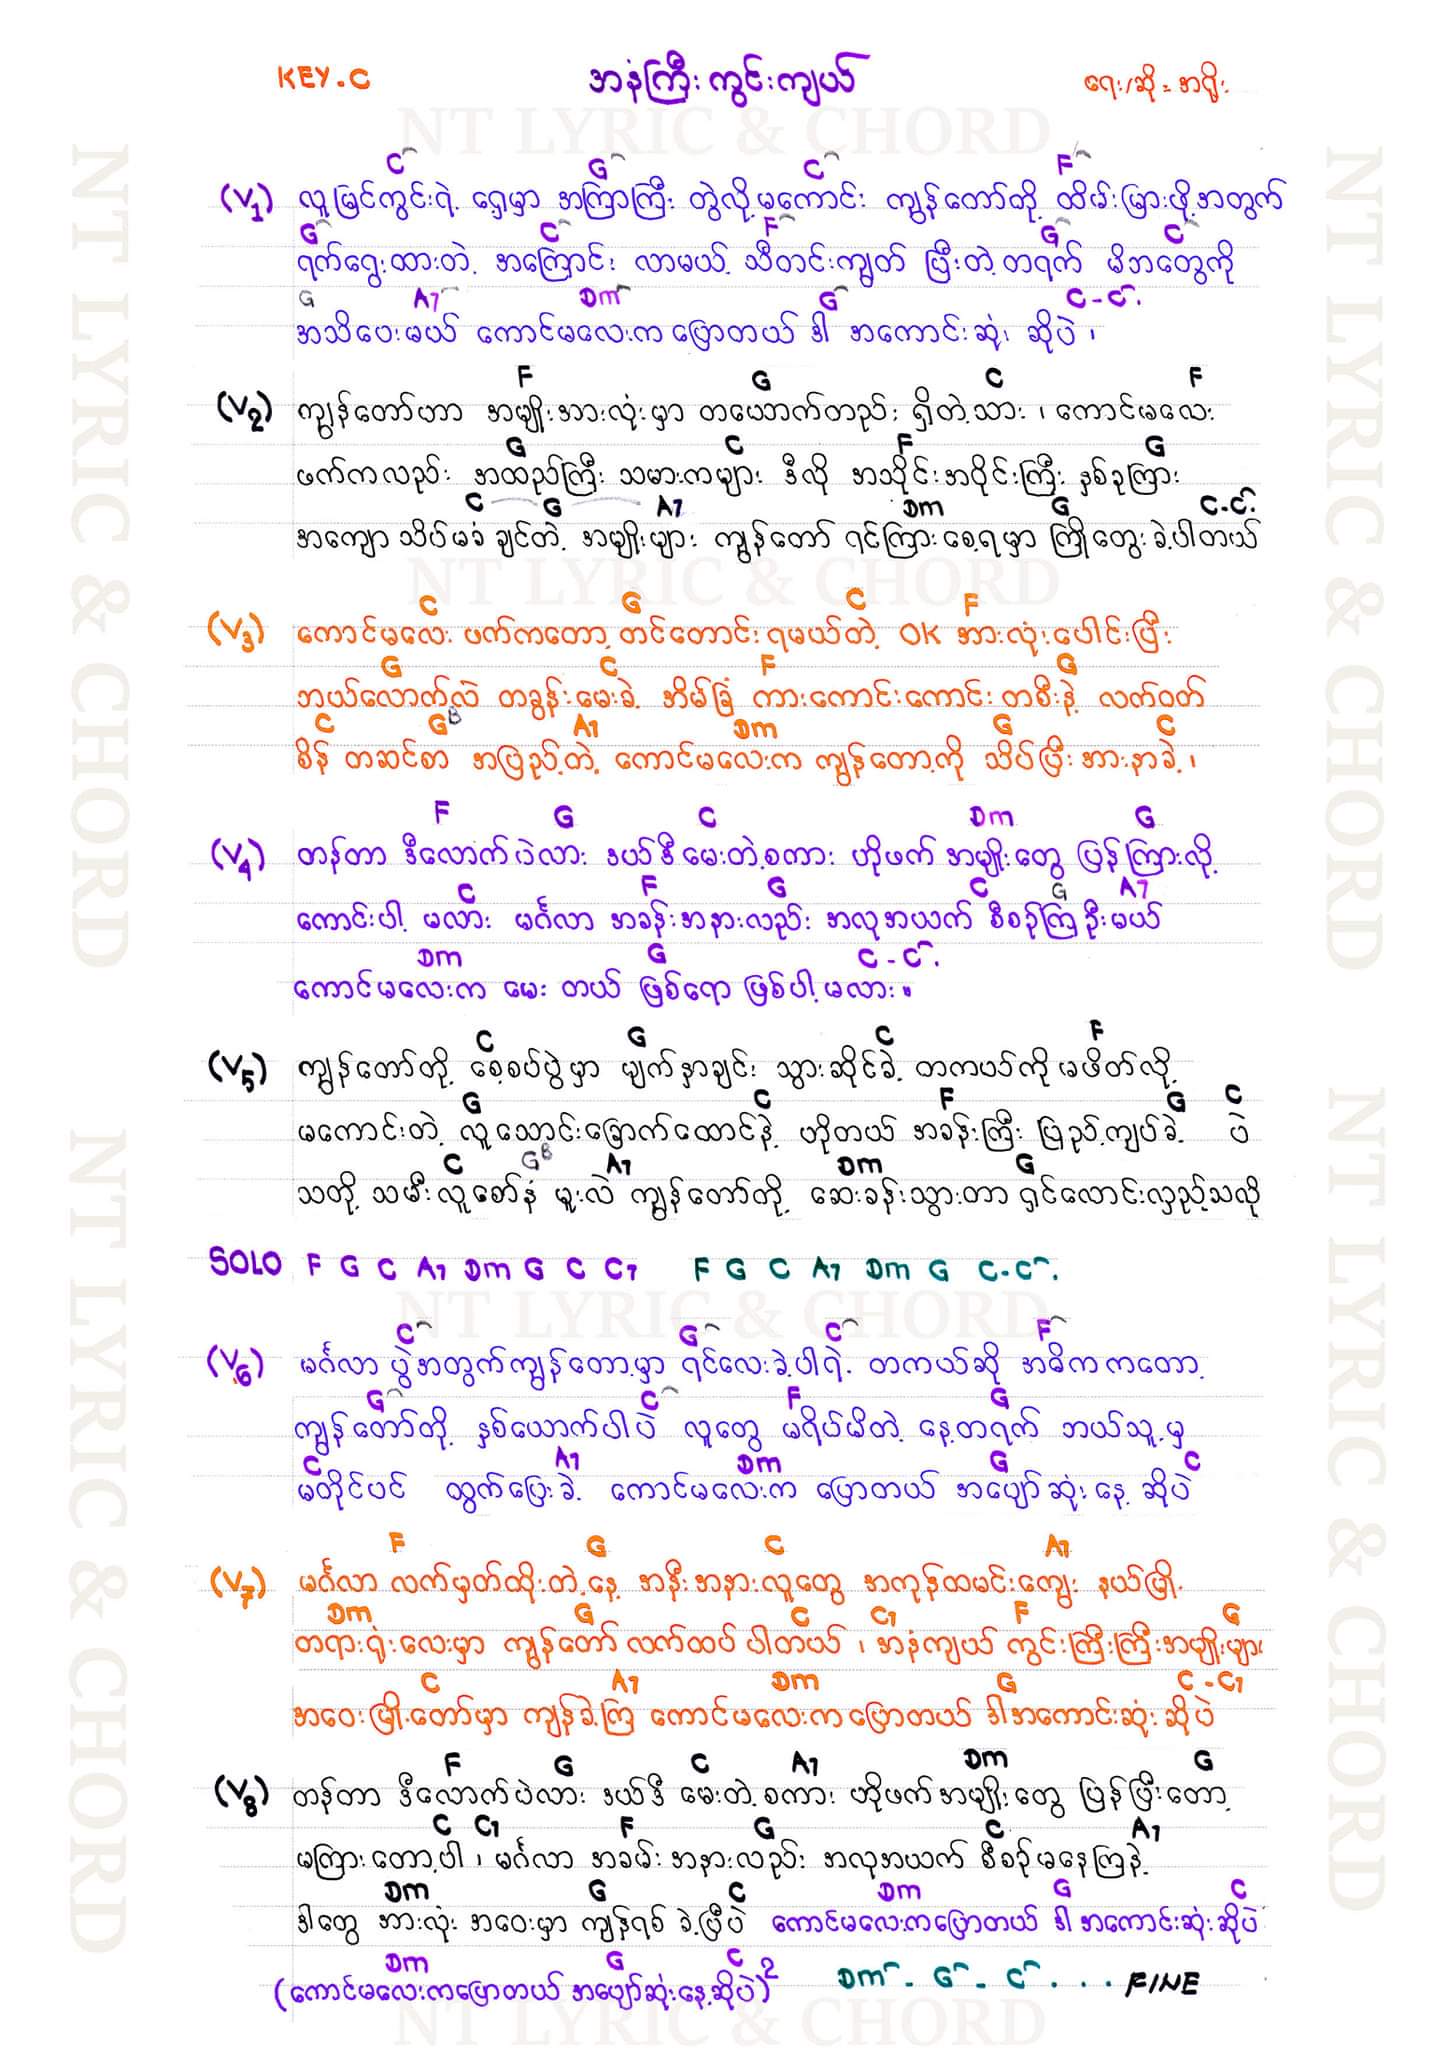 KEY-C အနံကြီးကွင်းကျယ် ရေး/ဆို = အရိုး
NT LYRIC & CHORD
C G C F
(V1) လူမြင်ကွင်းရဲ့ ရှေ့မှာ အကြာကြီး တွဲလို့မကောင်း ကျွန်တော်တို့ ထိမ်းမြားဖို့အတွက်
G C F G C
ရက်ရွေးထားတဲ့ အကြောင်း လာမယ့် သီတင်းကျွတ် ပြီးတဲ့တရက် မိဘတွေကို
G A7 Dm G C-C
အသိပေးမယ် ကောင်မလေးကပြောတယ် ဒါ အကောင်းဆုံး ဆိုပဲ ၊
F G C F
(V2) ကျွန်တော်ဟာ အမျိုးအားလုံးမှာ တယောက်တည်း ရှိတဲ့သား ၊ ကောင်မလေး
G C F G
ဖက်ကလည်း အထည်ကြီး သမားကများ ဒီလို အသိုင်းအဝိုင်းကြီး နှစ်ခုကြား
C G A7 Dm G C-C
အကျော သိပ်မခံ ချင်တဲ့ အမျိုးများ ကျွန်တော် ရင်ကြားစေ့ရမှာ ကြိုတွေးခဲ့ပါတယ်
NT LYRIC & CHORD
C G C F
(V3) ကောင်မလေး ဖက်ကတော့ တင်တောင်းရမယ်တဲ့ OK အားလုံးပေါင်းပြီး
G C F G
ဘယ်လောက်လဲ တခွန်းမေးခဲ့ အိမ်ခြံ ကားကောင်းကောင်းတစီးနဲ့ လက်ဝတ်
C GB A7 Dm G C
စိန် တဆင်စာ အပြည့်တဲ့ ကောင်မလေးက ကျွန်တော့ကို သိပ်ပြီးအားနာခဲ့ ၊
F G C Dm G
(V4) တန်တာ ဒီလောက်ပဲလား ဒယ်ဒီမေးတဲ့စကား ဟိုဖက် အမျိုးတွေ ပြန်ကြားလို့
C F G C G A7
ကောင်းပါ့ မလား မင်္ဂလာ အခန်းအနားလည်း အလုအယက် စီစဉ်ကြဦးမယ်
Dm G C-C
ကောင်မလေးက မေး တယ် ဖြစ်ရော ဖြစ်ပါ့မလား ။
C G C F
(V5) ကျွန်တော်တို့ စေ့စပ်ပွဲမှာ မျက်နှာချင်း သွားဆိုင်ခဲ့ တကယ်ကိုမဖိတ်လို့
G C F G C
မကောင်းတဲ့ လူသောင်းခြောက်ထောင်နဲ့ ဟိုတယ် အခန်းကြီး ပြည့်ကျပ်ခဲ့ ပဲ
C GB A7 Dm G
သတို့ သမီးလူစော်နံ မူးလဲ ကျွန်တော်တို့ ဆေးခန်းသွားတာ ရှင်လောင်းလှည့်သလို
SOLO F G C A7 Dm G C C7 F G C A7 Dm G C-C
NT LYRIC & CHORD
C G C F
(V6) မင်္ဂလာ ပွဲအတွက်ကျွန်တော့မှာ ရင်လေးခဲ့ပါရဲ့ တကယ်ဆို အဓိကကတော့
G C F G
ကျွန်တော်တို့ နှစ်ယောက်ပါပဲ လူတွေ မရိပ်မိတဲ့ နေ့တရက် ဘယ်သူ့မှ
C A7 Dm G C
မတိုင်ပင် ထွက်ပြေးခဲ့ ကောင်မလေးက ပြောတယ် အပျော်ဆုံးနေ့ ဆိုပဲ
F G C A7
(V7) မင်္ဂလာ လက်မှတ်ထိုးတဲ့နေ့ အနီးအနားလူတွေ အကုန်ထမင်းကျွေး နယ်မြို့
Dm G C C7 F G
တရားရုံးလေးမှာ ကျွန်တော်လက်ထပ်ပါတယ် ၊ အနံကျယ် ကွင်းကြီးကြီးအမျိုးများ
C A7 Dm G C-C7
အဝေးမြို့တော်မှာ ကျန်ခဲ့ကြ ကောင်မလေးကပြောတယ် ဒါအကောင်းဆုံးဆိုပဲ
F G C A7 Dm G
(V8) တန်တာ ဒီလောက်ပဲလား ဒယ်ဒီ မေးတဲ့စကား ဟိုဖက်အမျိုးတွေ ပြန်ပြီးတော့
C C7 F G C A7
မကြားတော့ပါ ၊ မင်္ဂလာ အခမ်းအနားလည်း အလုအယက် စီစဉ်မနေကြနဲ့
Dm G C Dm G C
ဒါတွေ အားလုံး အဝေးမှာ ကျန်ရစ်ခဲ့ပြီပဲ ကောင်မလေးကပြောတယ် ဒါ အကောင်းဆုံးဆိုပဲ
Dm G C
(ကောင်မလေးကပြောတယ် အပျော်ဆုံးနေ့ဆိုပဲ)2 Dm - G - C ... FINE
NT LYRIC & CHORD
NT LYRIC & CHORD
NT LYRIC & CHORD
NT LYRIC & CHORD
NT LYRIC & CHORD